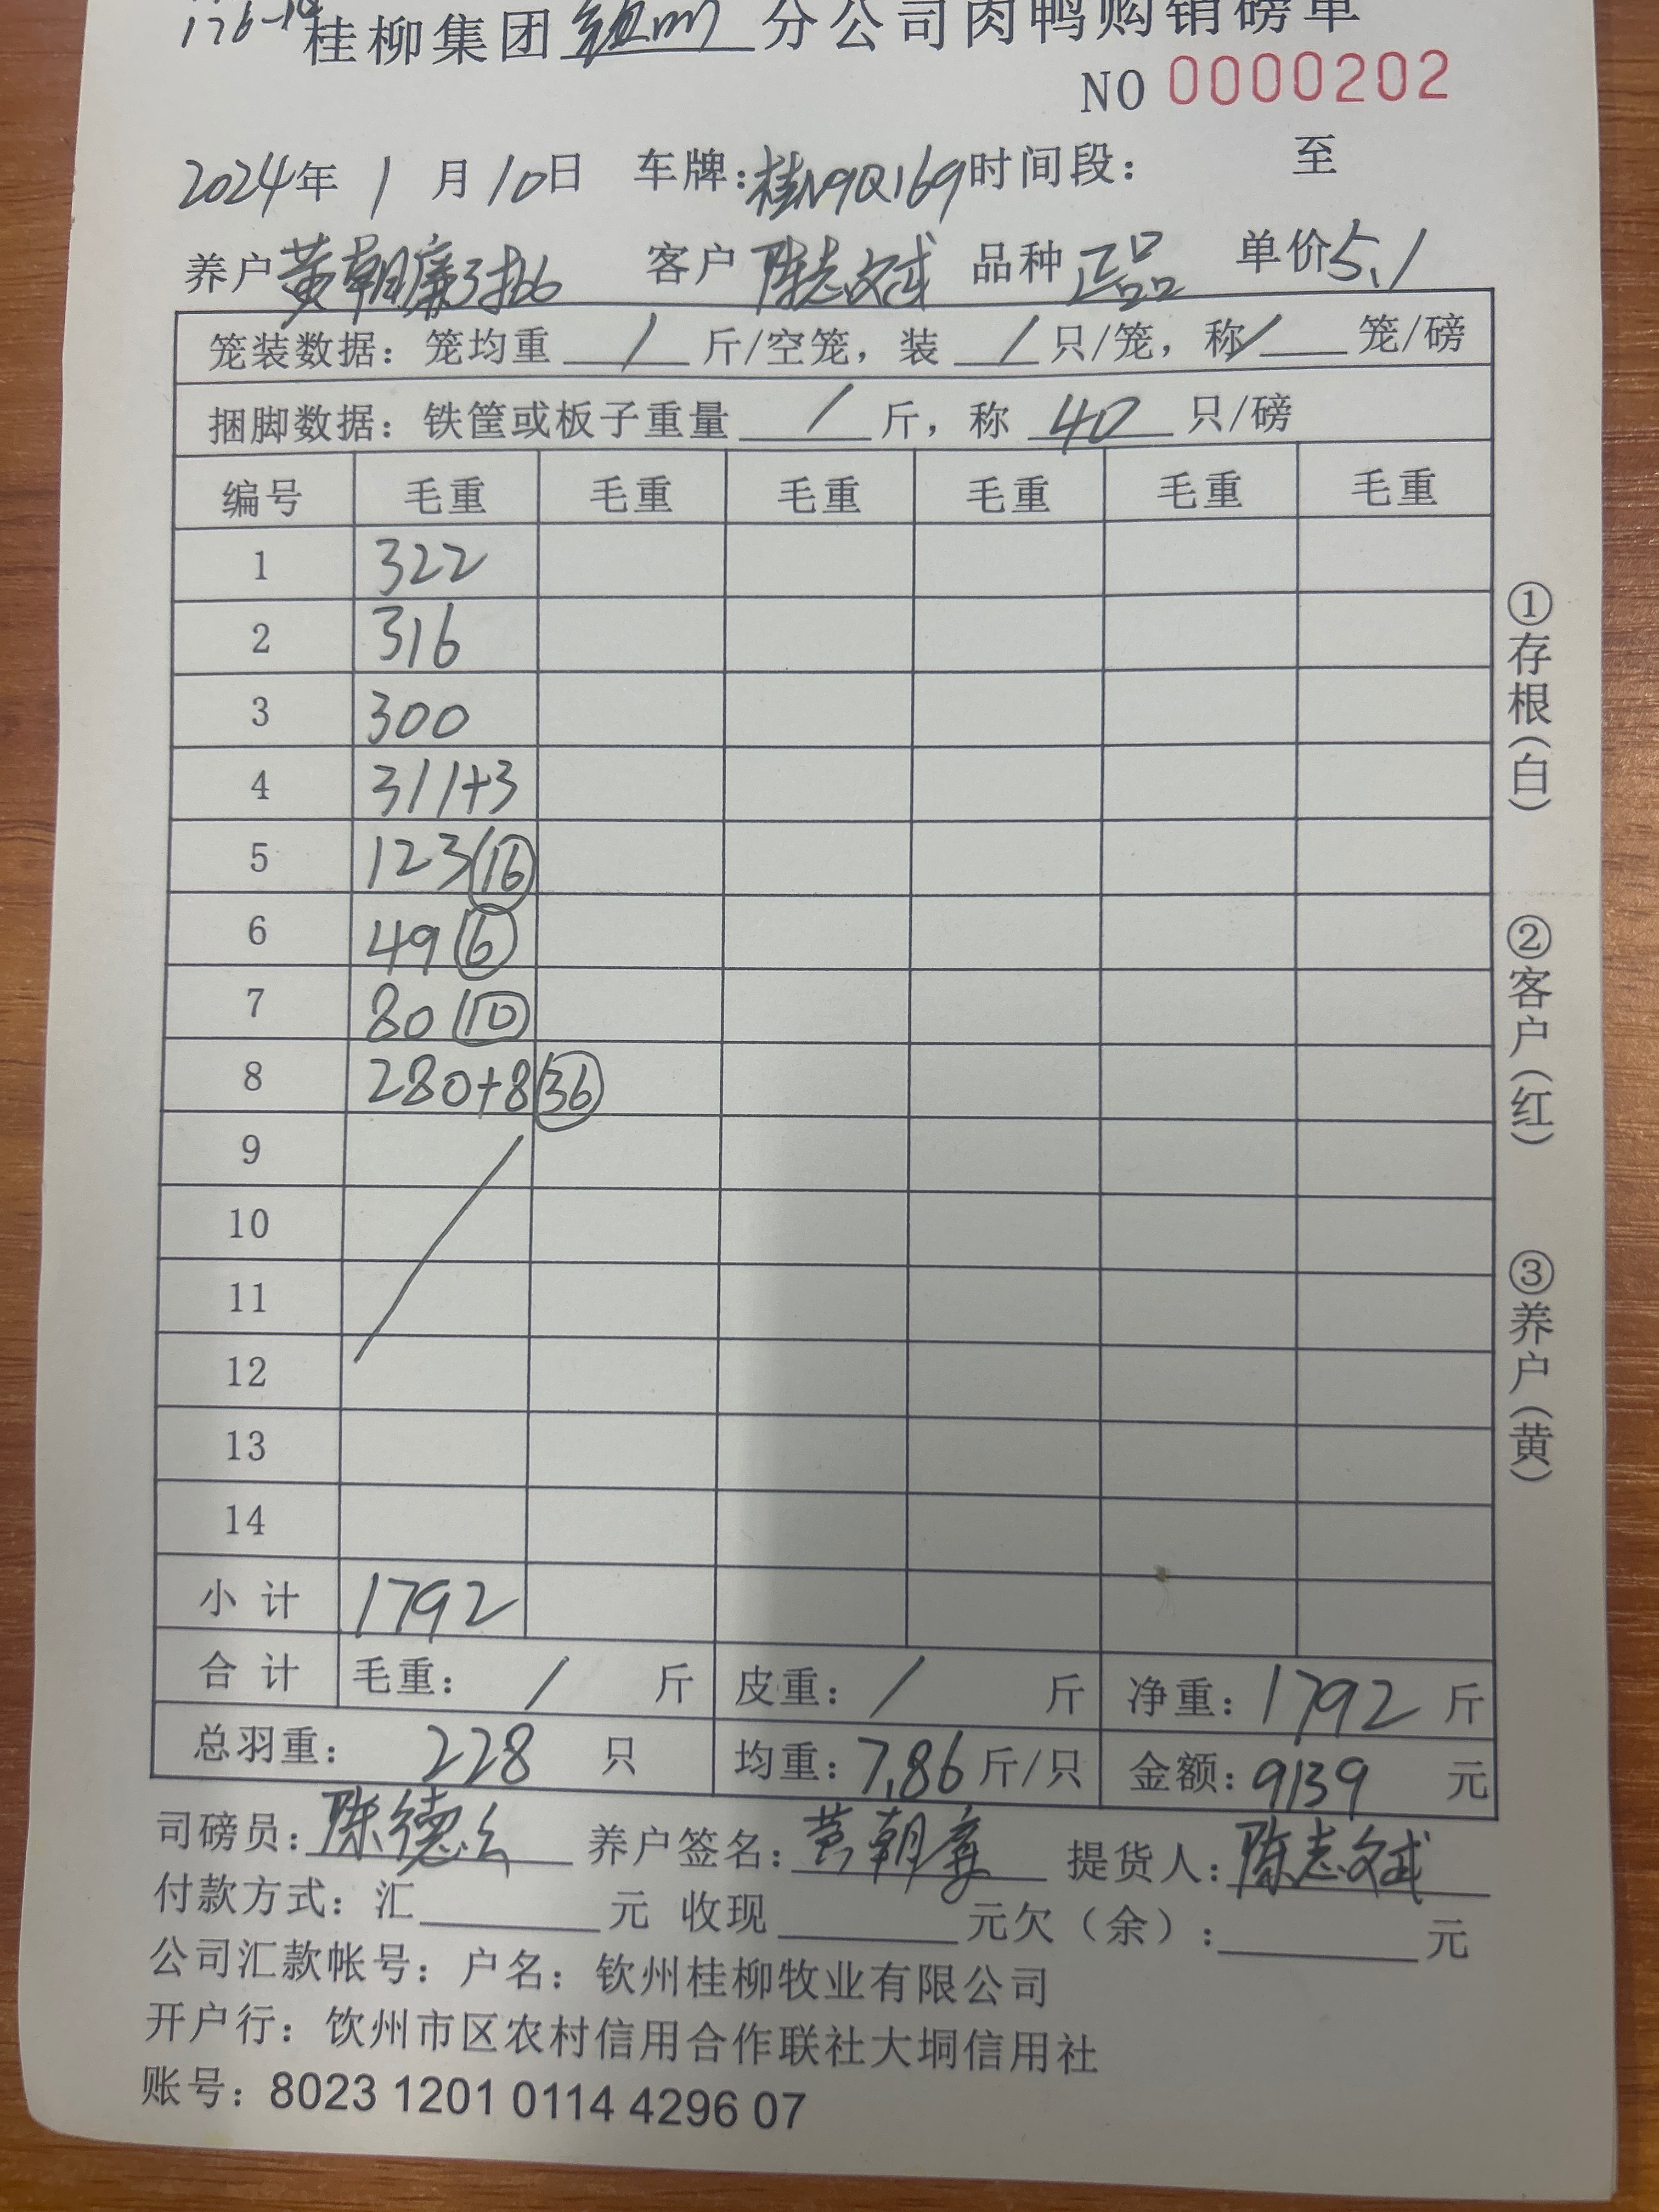 桂柳集团钦州分公司肉鸭购销磅单
NO 0000202
2024年 1 月 10日 车牌:桂N9Q169时间段: 至
养户黄朝廉3批6 客户 陈志斌 品种 正品 单价5.1
笼装数据: 笼均重 / 斤/空笼, 装 / 只/笼, 称/ 笼/磅
捆脚数据: 铁筐或板子重量 / 斤, 称 40 只/磅
编号 毛重 毛重 毛重 毛重 毛重 毛重
1 322
2 316
3 300
4 311+3
5 123 16
6 49 6
7 80 10
8 280+8 36
9
10
11
12
13
14
小计 1792
合计 毛重: / 斤 皮重: / 斤 净重: 1792 斤
总羽重: 228 只 均重: 7.86 斤/只 金额: 9139 元
司磅员: 陈德 养户签名: 黄朝廉 提货人: 陈志斌
付款方式: 汇 元 收现 元欠(余): 元
公司汇款帐号: 户名: 钦州桂柳牧业有限公司
开户行: 饮州市区农村信用合作联社大垌信用社
账号: 8023 1201 0114 4296 07
①存根(白)
②客户(红)
③养户(黄)